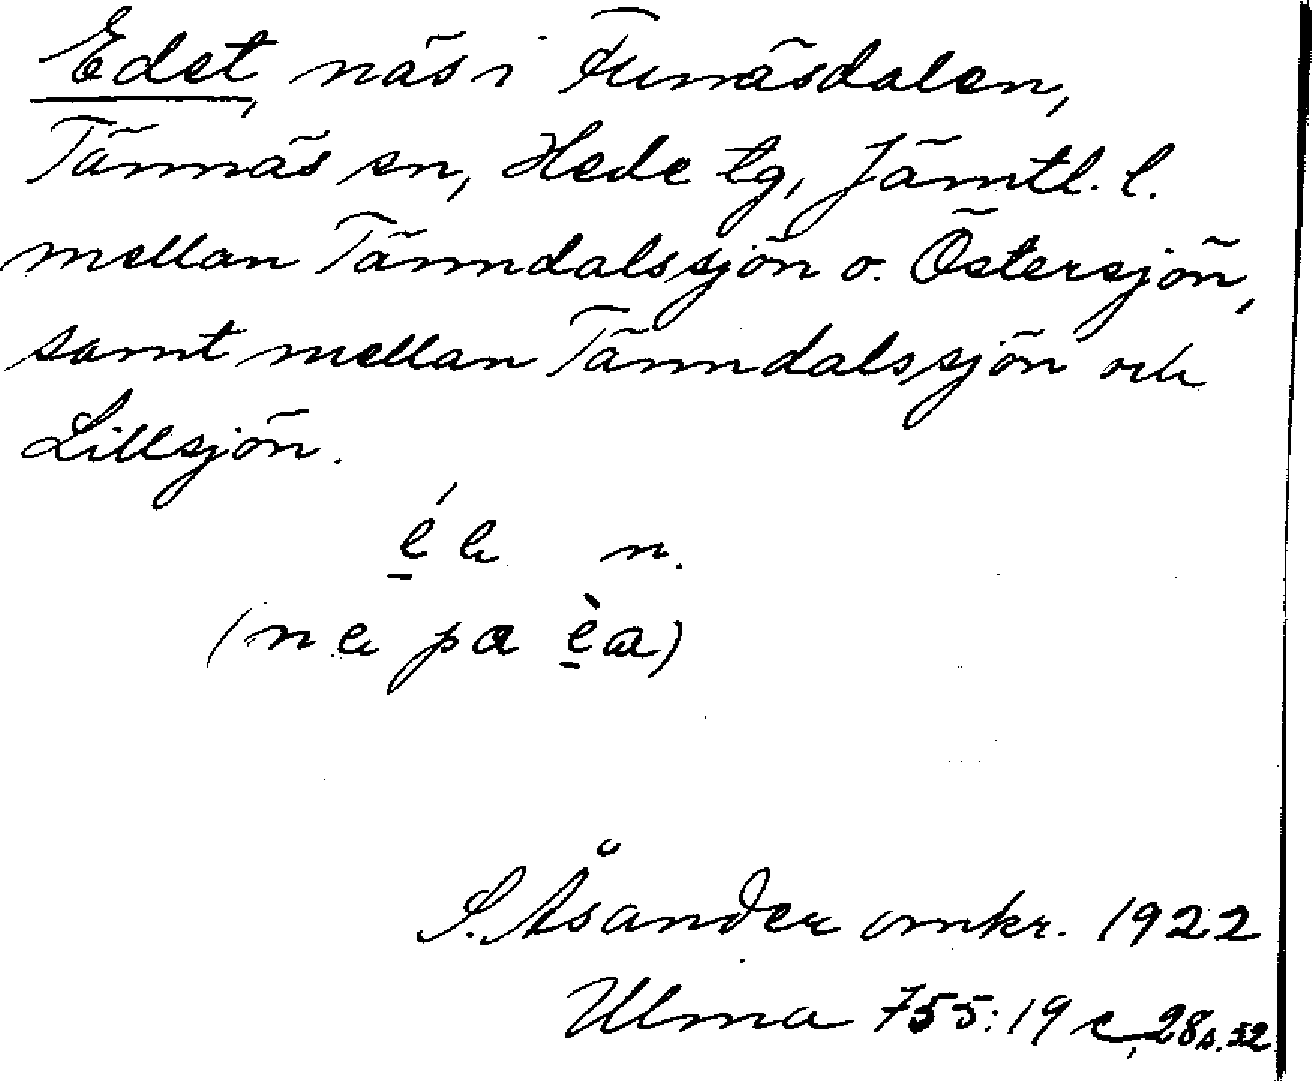 Edet, näs i Funäsdalen,
Tännäs sn, Hede tg, Jämtl. l.
mellan Tänndalssjön o. Östersjön,
samt mellan Tänndalssjön och
Lillsjön.
n.
S. Åsander omkr. 1922
Ulma 755:19 c, 28 s. 32